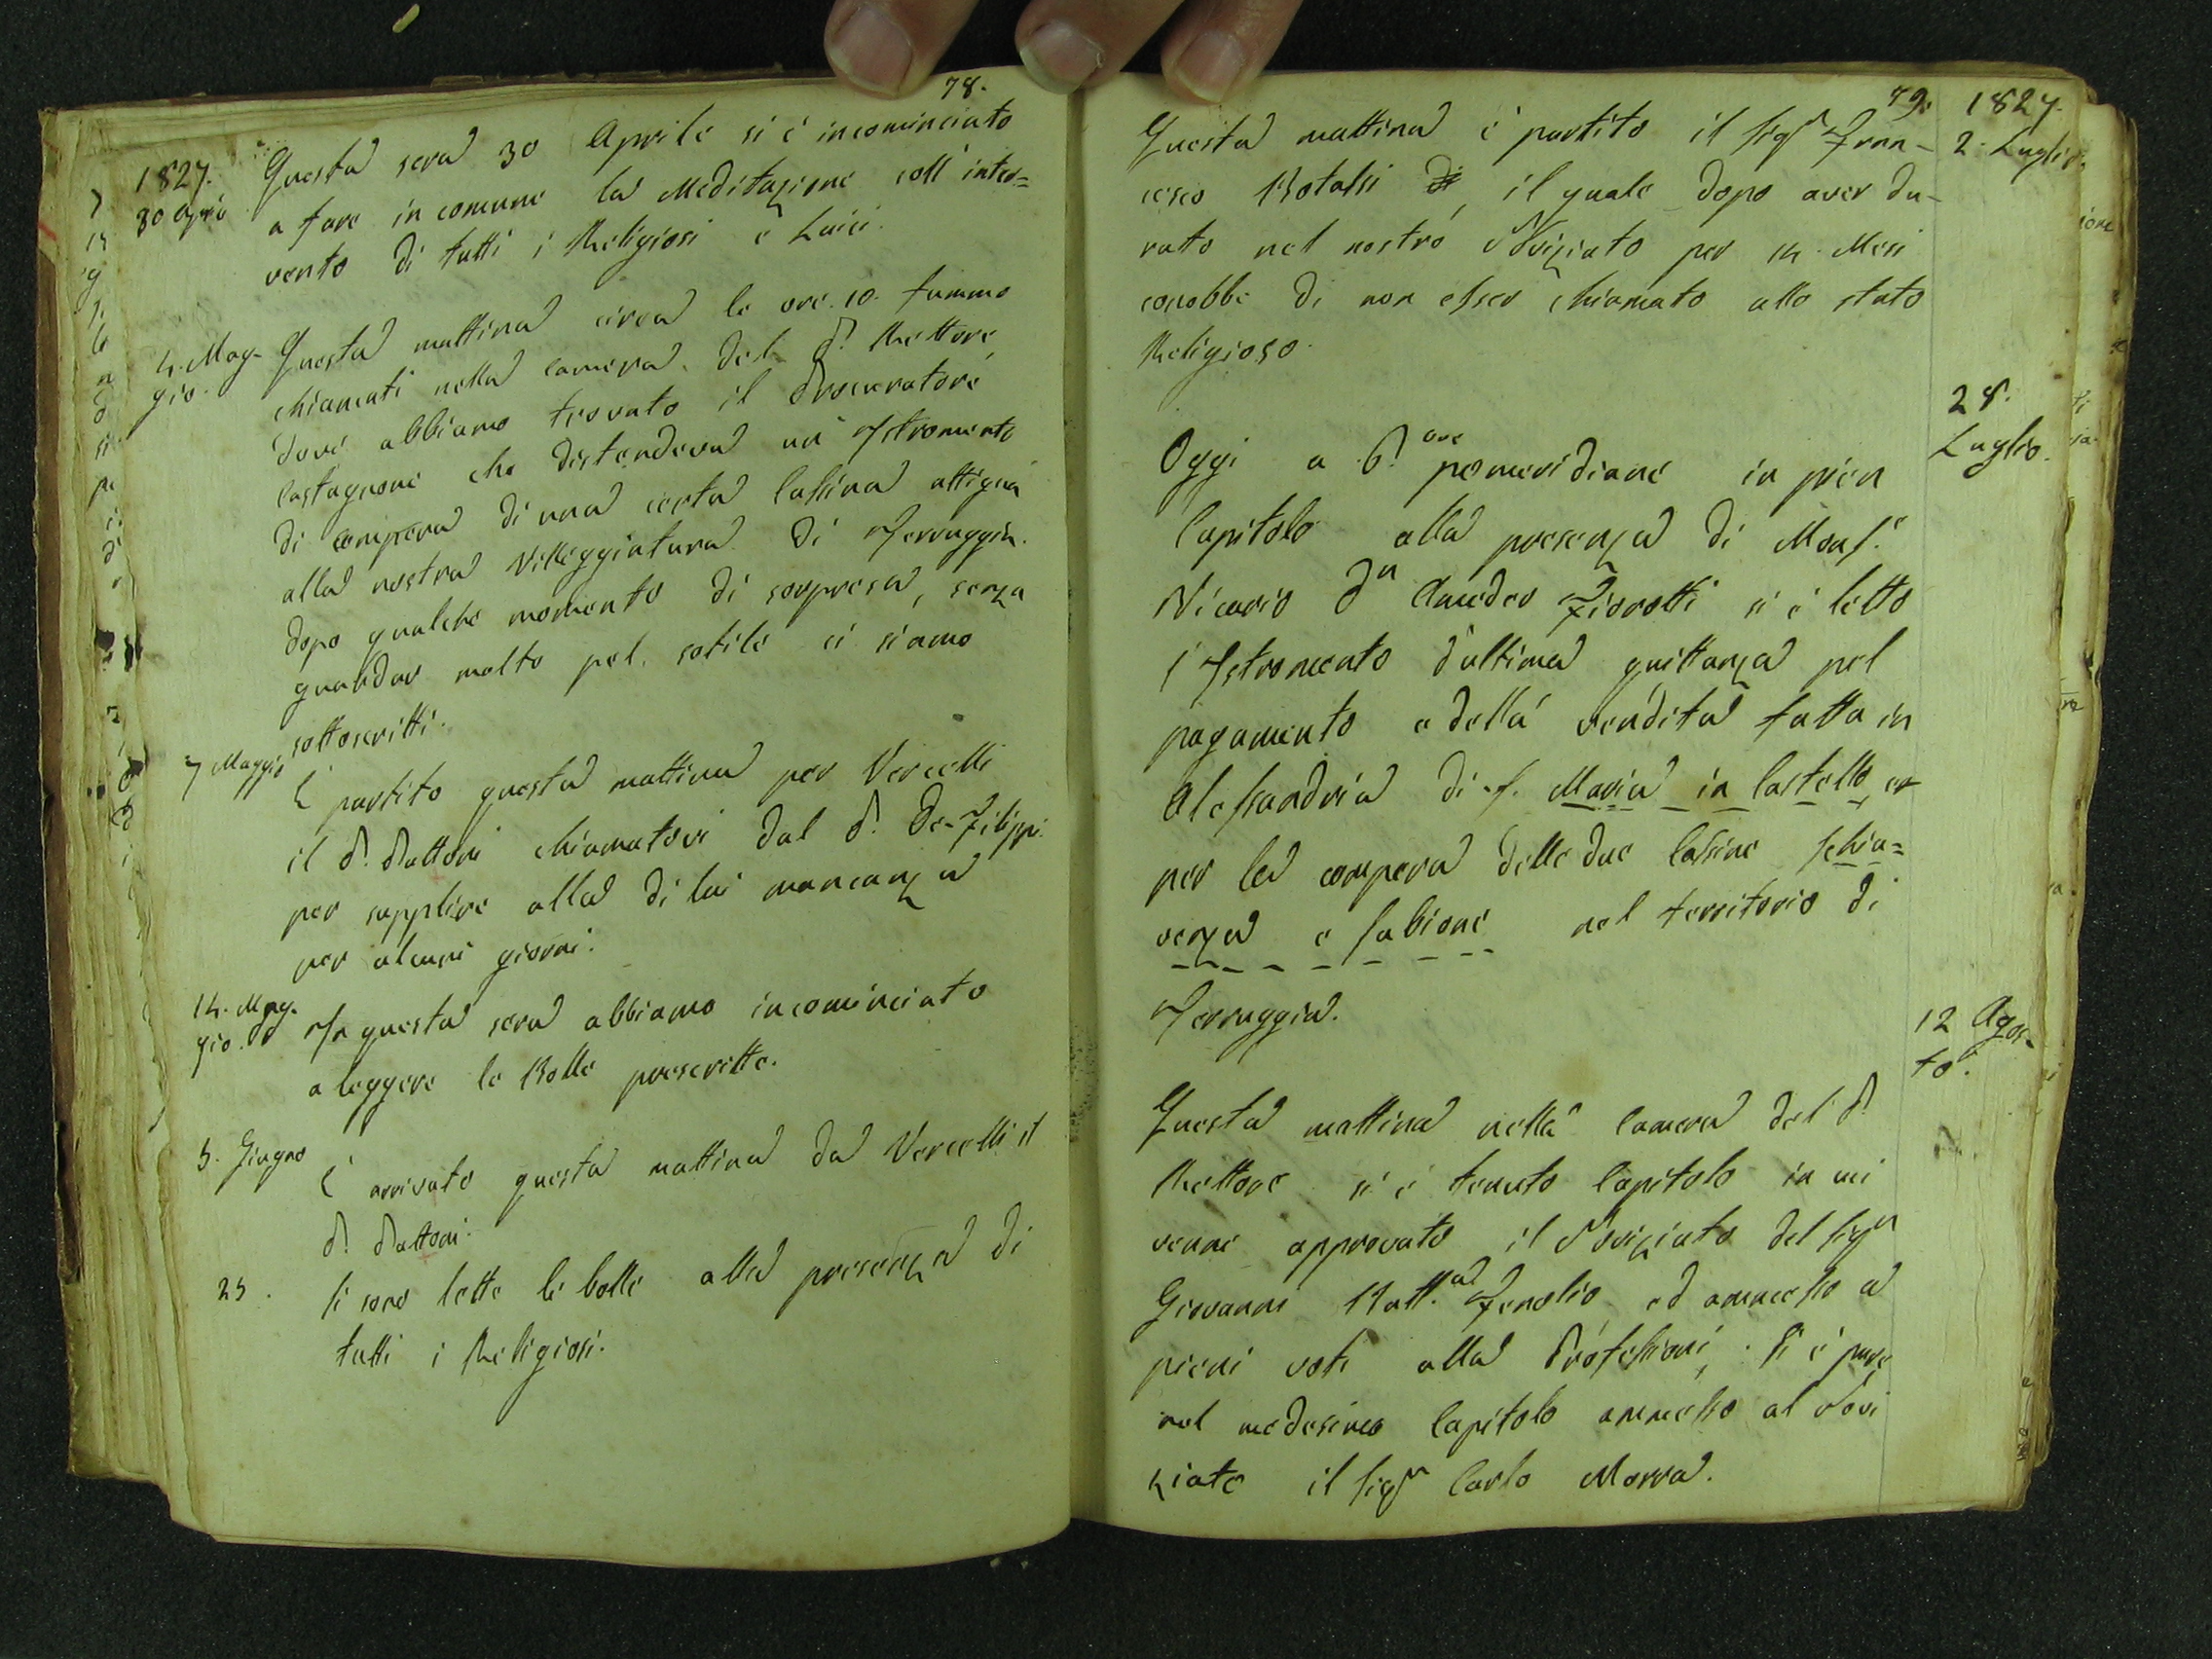 78.
1827.
30 Aprile
Questa sera 30 Aprile si è incominciato
a fare in comune la Meditazione coll'inter=
vento di tutti i Religiosi e Laici.
4. Mag-
gio.
Questa mattina circa le ore 10. fummo
chiamati nella camera del P. Rettore
dove abbiamo trovato il Procuratore
Castagnone che distendeva un Istromento
di compera di una certa Cassina attigua
alla nostra Villeggiatura di Terruggia.
dopo qualche momento di sorpresa, senza
guardar molto pel sotile ci siamo
sottoscritti.
7 Maggio
È partito questa mattina per Vercelli
il P. Pattoni chiamatovi dal P. De-Filippi
per supplire alla di lui mancanza
per alcuni giorni.
14. Mag-
gio.
In questa sera abbiamo incominciato
a leggere le Bolle prescritte.
5. Giugno
È arrivato questa mattina da Vercelli il
P. Pattoni.
25.
Si sono lette le bolle alla presenza di
tutti i Religiosi.
79.
1827.
2. Luglio.
Questa mattina è partito il Sigr Fran-
cesco Botassi di, il quale dopo aver du-
rato nel nostro Noviziato per 14 Mesi
conobbe di non esser chiamato allo stato
Religioso.
28.
Luglio.
Oggi a 6. ore pomeridiane in pien
Capitolo alla presenza di Mons.e
Vicario Dn Amedeo Fiorotti si è letto
l'Istromento d'ultima quittanza pel
pagamento e della vendita fatta in
Alessandria di S. Maria in Castello, e
per la compera delle due Cassine Schia=
venza e Sabione nel territorio di
Terruggia.
12 Agos-
to.
Questa mattina nella Camera del P.
Rettore si è tenuto Capitolo in cui
venne approvato il Noviziato del Sigr
Giovanni Batt.a Fenolio ed ammesso a
pieni voti alla Professione, si è pure
nel medesimo Capitolo ammesso al Novi
ziato il Sigr Carlo Morra.